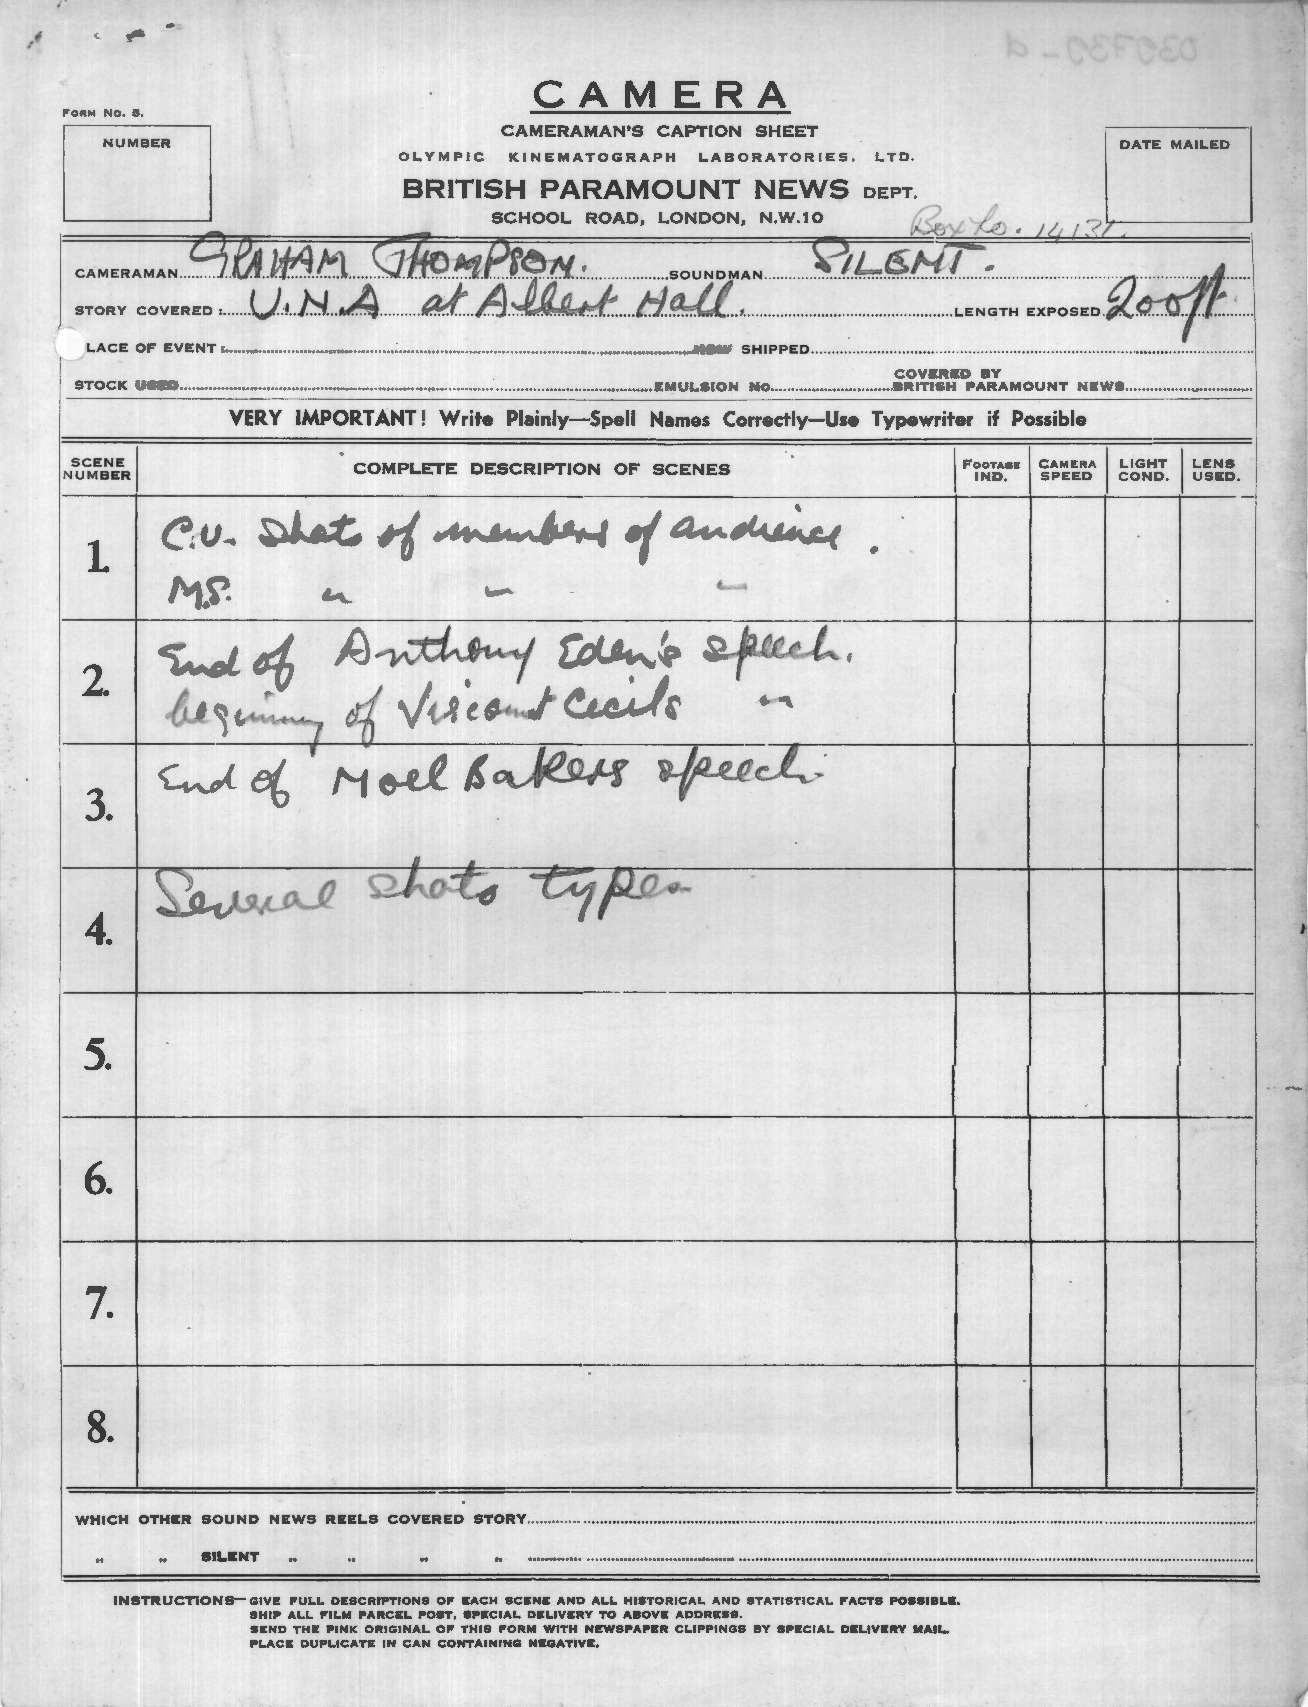 CAMERA
FORM NO. 5.
CAMERAMAN'S CAPTION SHEET
NUMBER
DATE MAILED
OLYMPIC KINEMATOGRAPH LABORATORIES, LTD.
BRITISH PARAMOUNT NEWS DEPT.
SCHOOL ROAD, LONDON, N.W.10
Box No. 14131.
CAMERAMAN GRAHAM THOMPSON. SOUNDMAN SILENT.
STORY COVERED: U.N.A at Albert Hall. LENGTH EXPOSED 200ft.
LACE OF EVENT: HOW SHIPPED
STOCK USED EMULSION NO. COVERED BY BRITISH PARAMOUNT NEWS
VERY IMPORTANT! Write Plainly—Spell Names Correctly—Use Typewriter if Possible
SCENE NUMBER COMPLETE DESCRIPTION OF SCENES FOOTAGE IND. CAMERA SPEED LIGHT COND. LENS USED.
1. C.U. Shots of members of audience.
M.S. " " "
2. End of Anthony Eden's speech.
beginning of Viscount Cecils "
3. End of Noel Bakers speech.
4. Several shots types
5.
6.
7.
8.
WHICH OTHER SOUND NEWS REELS COVERED STORY
" " SILENT " " " "
INSTRUCTIONS—GIVE FULL DESCRIPTIONS OF EACH SCENE AND ALL HISTORICAL AND STATISTICAL FACTS POSSIBLE.
SHIP ALL FILM PARCEL POST, SPECIAL DELIVERY TO ABOVE ADDRESS.
SEND THE PINK ORIGINAL OF THIS FORM WITH NEWSPAPER CLIPPINGS BY SPECIAL DELIVERY MAIL.
PLACE DUPLICATE IN CAN CONTAINING NEGATIVE.